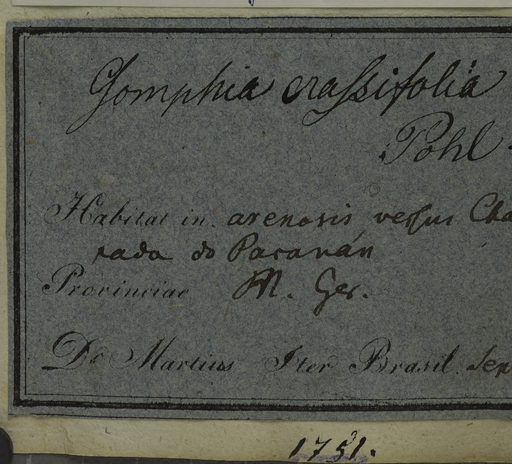 Gomphia crassifolia
Pohl.
Habitat in arenosis versus Cha
rada do Paranán
Provinciae M. Ger.
Dr Martius Iter Brasil. Sep
1751.